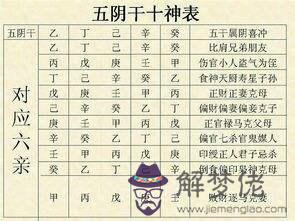 五阴干十神表
五阴干 乙 丁 己 辛 癸 五干属阴喜冲
对应六亲
乙 丁 己 辛 癸 比肩兄弟朋友
丙 戊 庚 壬 甲 伤官小人盗气为侄
丁 己 辛 癸 乙 食神天厨寿星子孙
戊 庚 壬 甲 丙 正财正妻克母
己 辛 癸 乙 丁 偏财偏妻偏妾克子
庚 壬 甲 丙 戊 正官禄马克父母
辛 癸 乙 丁 己 偏官七杀官鬼媒人
壬 甲 丙 戊 印绶正人君子忌杀
癸 乙 丁 己 倒食偏印枭神克母
甲 丙 戊 庚 败财逐马克妻
解梦佬
www.jiemenglao.com